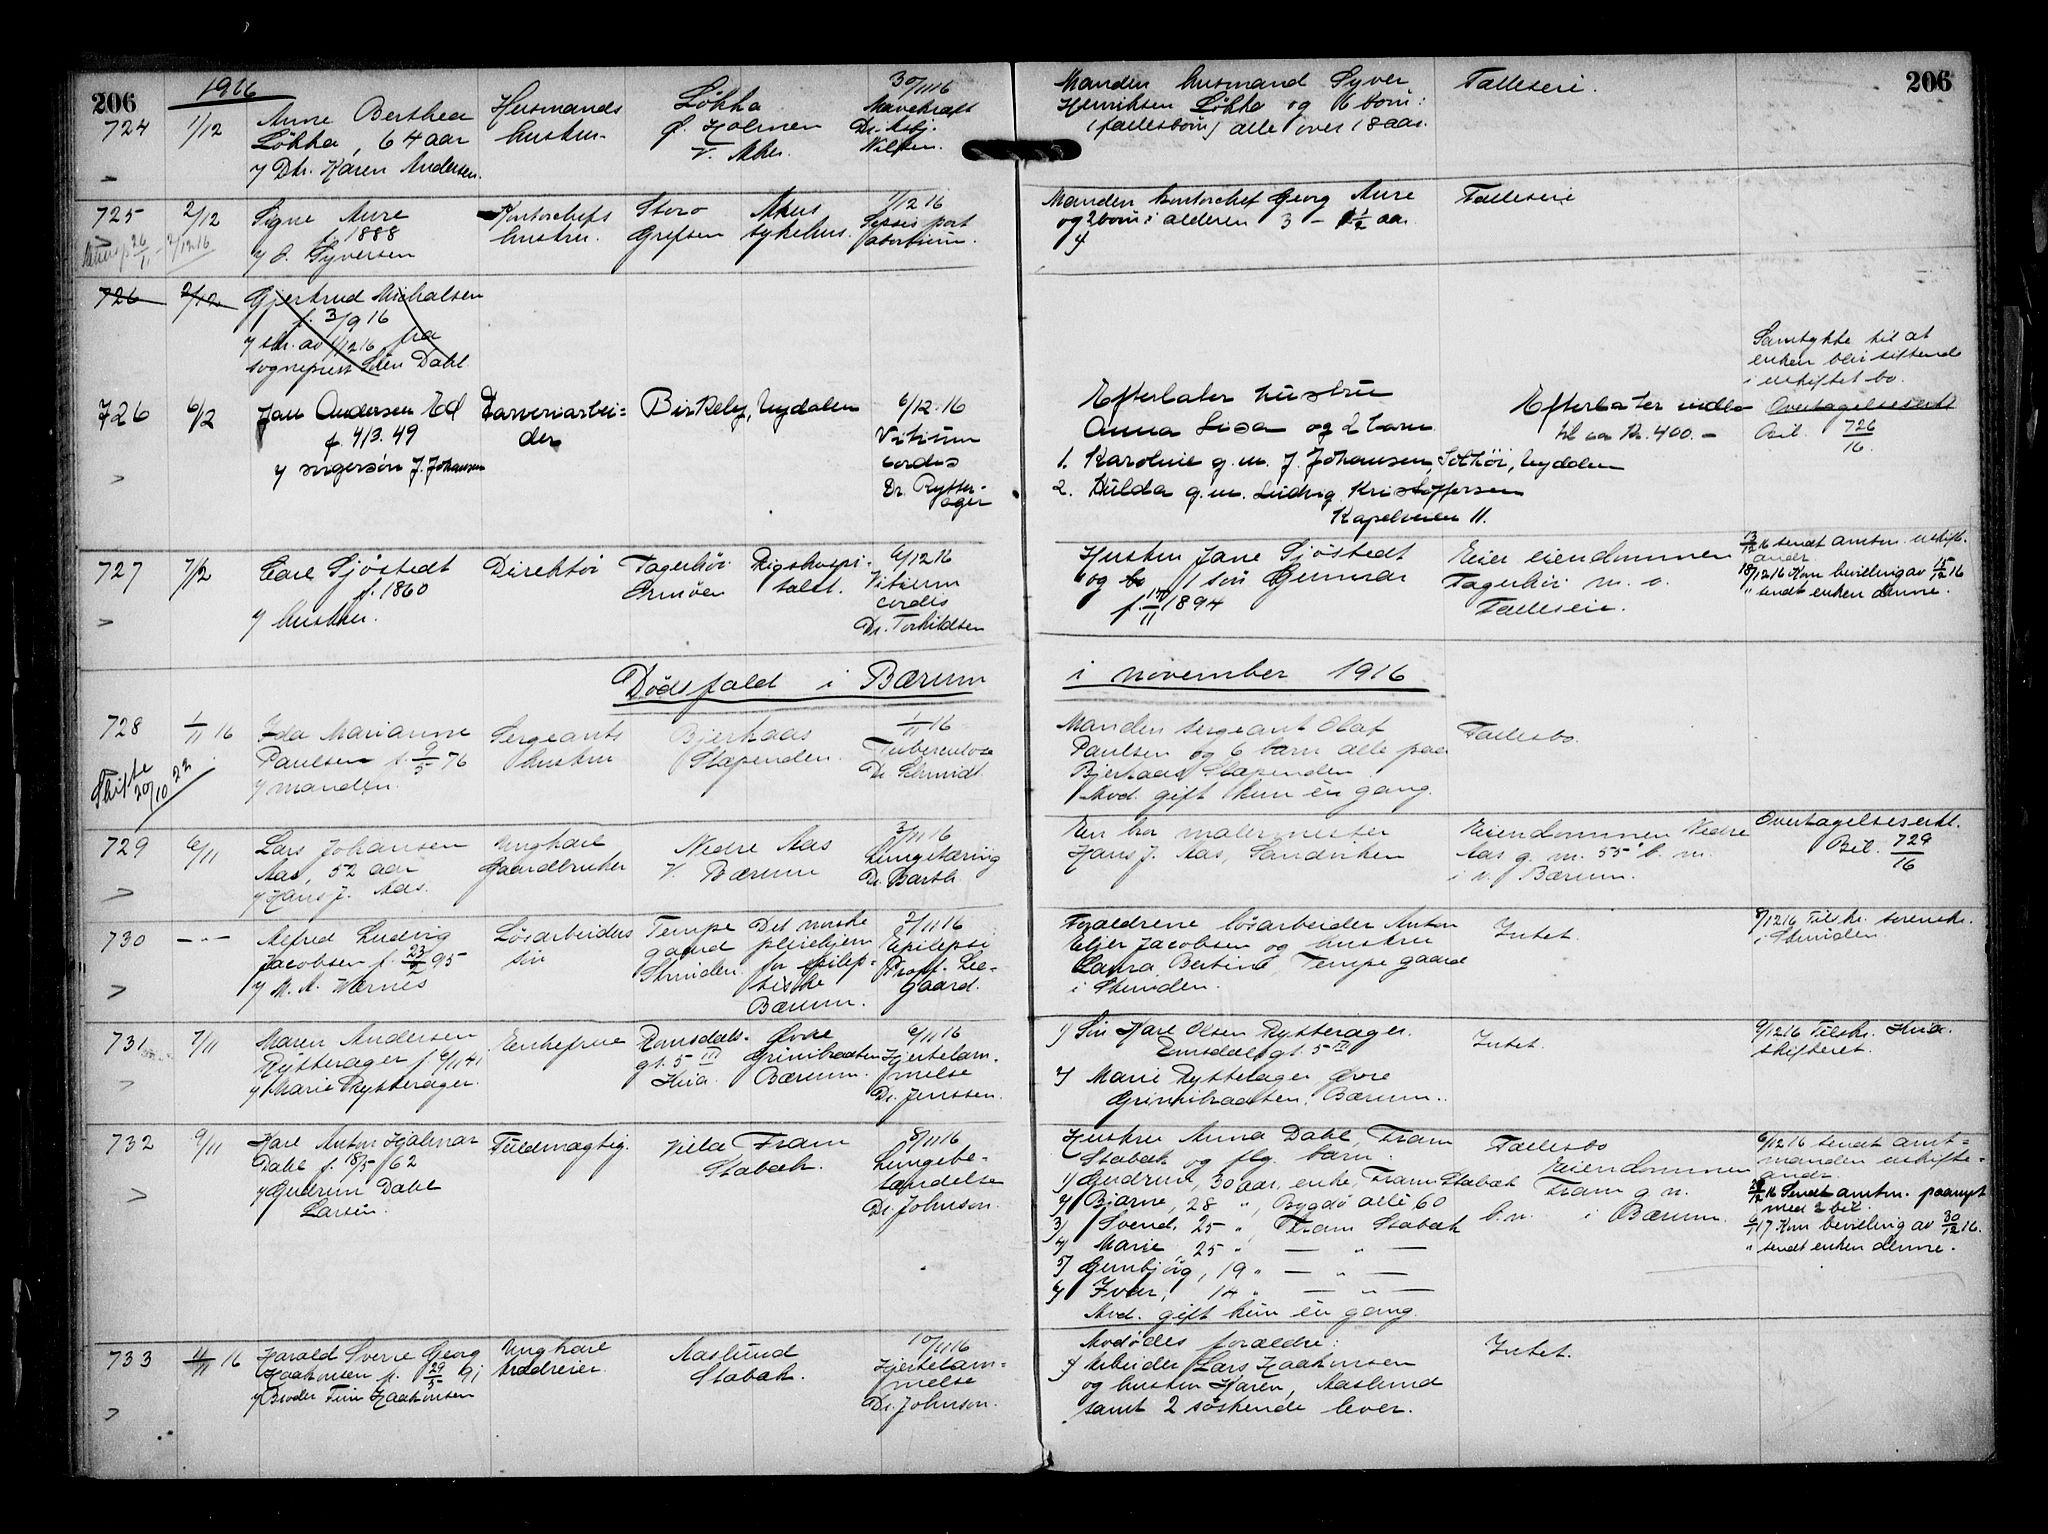 206
1916
206
724
1/12
Anne Berthea
Løkka, 64 aar
v/ Dtr. Karen Andersen.
Husmands
hustru.
Løkka
p. Holmen
V. Aker.
30/11 16
Mavekræft
Dr. Asbj.
Nilsen.
Manden husmand Syver
Henriksen Løkka og 6 børn:
(fællesbørn) alle over 18 aar.
Fælleseie.
725
2/12
Signe Aure
f. 1888
v/ O. Syversen
Kontorchefs
hustru.
Storo
Grefsen
Akers
sykehus.
1/12 16
Sepsis post
abortium.
Manden kontorchef Georg Aure
og 2 børn i alderen 3 – 1 1/2 aar.
Fælleseie
726
2/12
Gjertrud Michalsen
f. 3/9 16
v/ skr. av 1/12 16 fra
sogneprest Dahl.
Samtykke til at
enken blir sittende
i uskiftet bo.
726
6/12
Jan Andersen Ed
f. 4/3. 49
v/ svigersøn J. Johansen
Farveriarbei-
der
Birkely, Nydalen
6/12. 16
Vitium
cordis
Dr. Rytter-
ager
Efterlater hustru
Anna Lisa og 2 barn
1. Karoline g. m. J. Johansen, Solhøi, Nydalen
2. Hulda g. m. Ludvig Kristoffersen
Kapelveien 11.
Efterlater indbo
til ca Kr. 400. –
Overtagelseserkl.
Bil. 726/16
727
7/12
Carl Sjøstedt
f. 1860
v/ hustru.
Direktør
Fagerhøi
Ormøen
Rigshospi-
talet.
6/12 16
Vitium
cordis
Dr. Torkildsen
Hustru Jane Sjøstedt
og 1 søn Gunnar
f. 17/11 1894
Eier eiendommen
Fagerhøi m. v.
Fælleseie.
13/12 16 sendt amtm. uskift.
andr.
18/12 16 Kom bevilling av 15/12 16
" sendt enken denne.
Dødsfald i Bærum
i november 1916
728
1/11 16
Skifte
20/10 22
Ida Marianne
Paulsen f. 9/5 76
v/ manden.
Sergeants
hustru
Bjerkaas
Slependen.
1/11 16
Tuberculose
Dr. Schmidt.
Manden sergeant Olaf
Paulsen og 6 barn alle paa
Bjerkaas Slependen
Avd. gift kun én gang.
Fællesbo.
729
6/11
Lars Johansen
Aas, 52 aar
v/ Hans J. Aas.
Ungkarl
Gaardbruker
Nedre Aas
V. Bærum
3/11 16
Lungetæring
Dr. Barth
En bror malermester
Hans J. Aas, Sandviken
Eiendommen Nedre
Aas g. nr. 55 b. nr.
i V. Bærum.
Overtagelseserkl.
Bil. 729/16
730
– " –
Alfred Ludvig
Jacobsen f. 23/2 95
v/ M. A. Wærnes
Løsarbeiders
søn
Tempe
gaard
Strinden.
Det norske
pleiehjem
for epilep-
tiske
Bærum.
2/11 16
Epilepsi
Proff. Lee-
gaard.
Forældrene løsarbeider Anton
Elier Jacobsen og hustru
Laura Bertine, Tempe gaard
i Strinden.
Intet.
8/12 16 Tilskr. sorenskr.
i Strinden.
731
7/11
Maren Andersen
Rytterager f. 6/1 41
v/ Marie Rytterager.
Enkefrue
Romsdals-
gt. 5 III
Kr.a.
Øvre
Grinibraaten
Bærum.
6/11 16
Hjertelam-
melse
Dr. Jenssen.
1) Søn Karl Olsen Rytterager.
Romsdalsgt. 5 III
2) Marie Rytterager Øvre
Grinibraaten, Bærum.
Intet.
9/12 16 Tilskr. Kr.a.
skifteret.
732
9/11
Karl Anton Hjalmar
Dahl f. 18/5 62
v/ Gudrun Dahl
Larsen.
Fuldmægtig.
Villa Fram
Stabæk.
8/11 16
Lungebe-
tændelse
Dr. Johnson.
Hustru Anna Dahl, Fram
Stabæk og flg. barn:
1) Gudrun, 30 aar, enke, Fram Stabæk
2) Bjarne, 28 ", Bygdø allé 60
3) Svend, 25 " Fram Stabæk
4) Marie, 25 " — " —
5) Gunbjørg, 19 " — " —
6) Ivar, 14 " — " —
Avd. gift kun én gang.
Fællesbo
Eiendommen
Fram g. n.
b. n. i Bærum.
6/12 16 sendt amt-
manden uskifte-
andr.
12 16 Sendt amtm. paanyt
med 2 bil.
17 Kom bevilling av 30/12 16.
" sendt enken denne.
733
11/11 16
Harald Sverre Georg
Haakonsen f. 29/5 91
v/ Broder Finn Haakonsen
Ungkarl
Aaslund
Stabæk.
10/11 16
Hjertelam-
melse
Dr. Johnson.
Avdødes forældre:
Arbeider Lars Haakonsen
og hustru Karen, Aaslund
samt 2 søskende lever.
Intet.